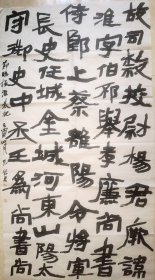 故司隸校尉楊君厥諱
淮字伯邳舉孝廉尚書
侍郎上蔡雒陽令將軍
長史任城金城河東山陽太
守御史中丞三為尚書尚書
節臨楊淮表記